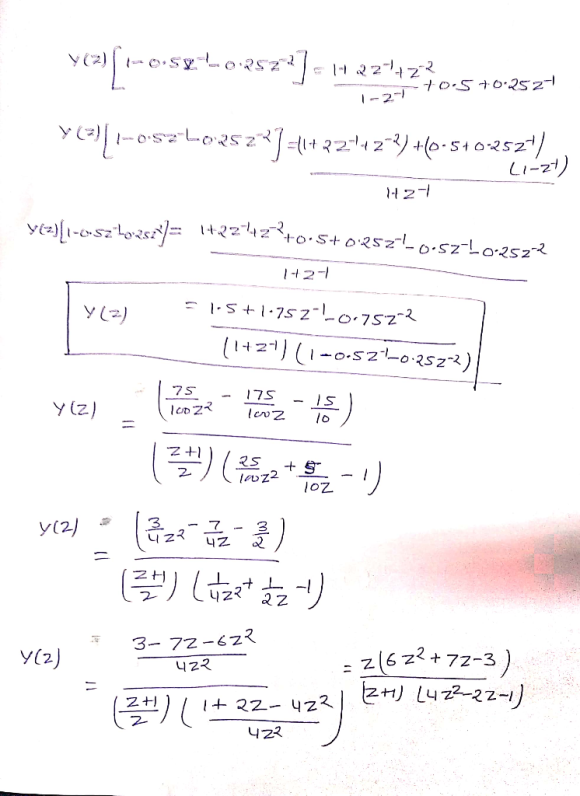 Y(z)[1-0.5z⁻¹-0.25z⁻²] = (1+2z⁻¹+z⁻²)/(1-z⁻¹) + 0.5+0.25z⁻¹
Y(z)[1-0.5z⁻¹-0.25z⁻²] = ((1+2z⁻¹+z⁻²)+(0.5+0.25z⁻¹)(1-z⁻¹))/(1+z⁻¹)
Y(z)[1-0.5z⁻¹-0.25z⁻²] = (1+2z⁻¹+z⁻²+0.5+0.25z⁻¹-0.5z⁻¹-0.25z⁻²)/(1+z⁻¹)
Y(z) = (1.5+1.75z⁻¹-0.75z⁻²)/((1+z⁻¹)(1-0.5z⁻¹-0.25z⁻²))
Y(z) = (75/100z² - 175/100z - 15/10)/(((z+1)/z)(25/100z² + 5/10z - 1))
Y(z) = (3/4z² - 7/4z - 3/2)/(((z+1)/z)(1/4z² + 1/2z - 1))
Y(z) = ((3-7z-6z²)/4z²)/(((z+1)/z)((1+2z-4z²)/4z²)) = z(6z²+7z-3)/((z+1)(4z²-2z-1))